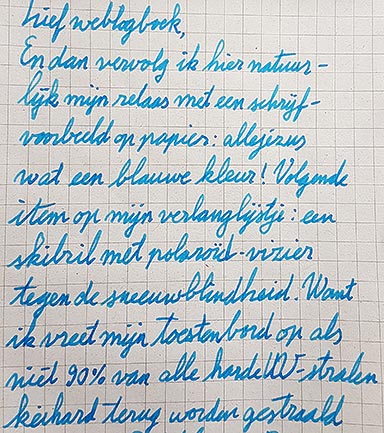 Lief weblogboek,
En dan vervolg ik hier natuur-
lijk mijn relaas met een schrijf-
voorbeeld op papier: allejezus
wat een blauwe kleur! Volgende
item op mijn verlanglijstje: een
skibril met polaroïd-vizier
tegen de sneeuwblindheid. Want
ik vreet mijn toetsenbord op als
niet 90% van alle harde UV-stralen
keihard terug worden gestraald